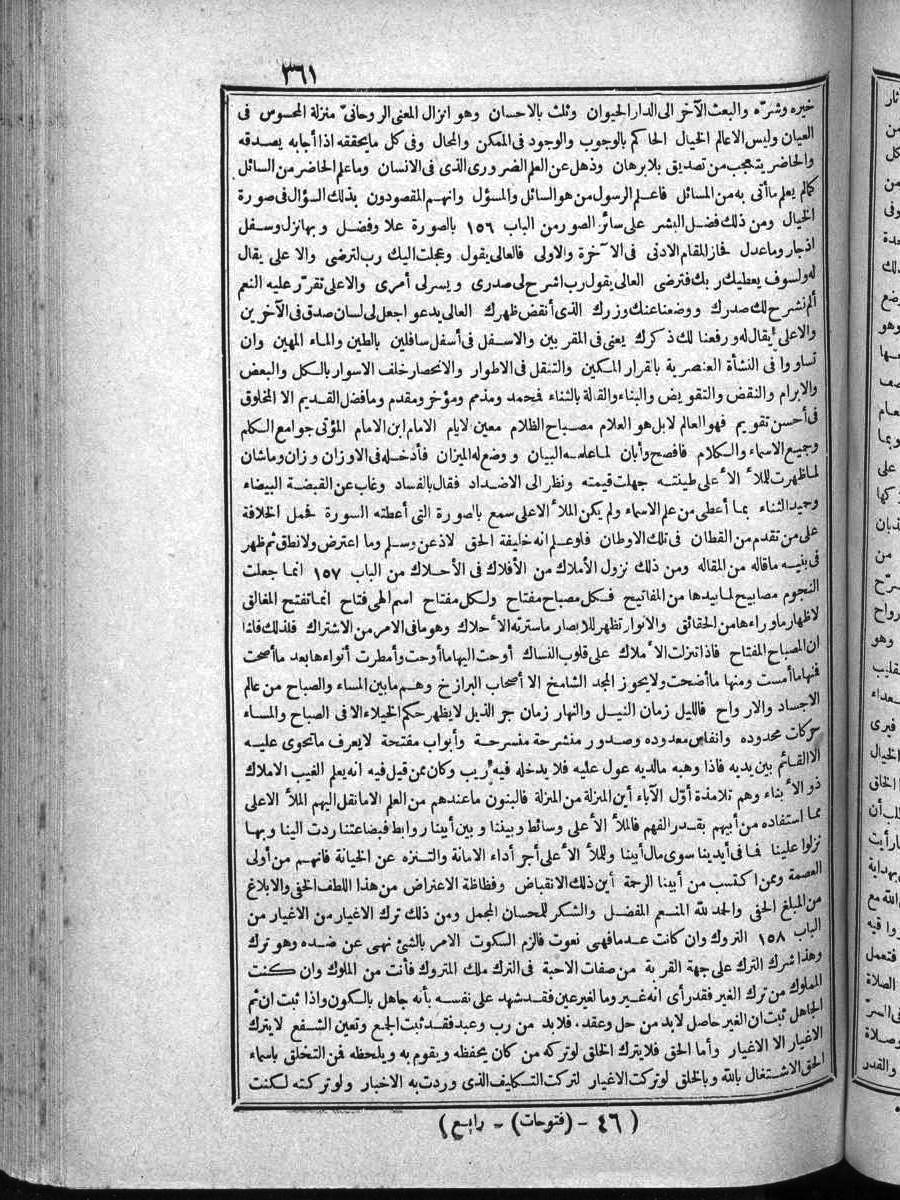 ٣٦١
خيره وشره والبعث الآخر الى الدار الحيوان وثلث بالاحسان وهو انزال المعنى الروحانى منزلة المحسوس فى
العيان وليس الاعالم الخيال الحاكم بالوجوب والوجود فى الممكن والمحال وفى كل ما يحققه اذا أجابه يصدقه
والحاضر يتعجب من تصديق بلا برهان وذهل عن العلم الضرورى الذى فى الانسان وما علم الحاضر من السائل
كمالم يعلم ما أتى به من المسائل فاعلم الرسول من هو السائل والمسؤل وانهم المقصودون بذلك السؤال فى صورة
الخيال ومن ذلك فضل البشر على سائر الصور من الباب ١٥٦ بالصورة علا وفضل وبها نزل وسفل
اذجار وما عدل فحاز المقام الادنى فى الآخرة والاولى فالعالى يقول وعجلت اليك رب لترضى والاعلى يقال
له ولسوف يعطيك ربك فترضى العالى يقول رب اشرح لى صدرى ويسر لى أمرى والاعلى تقرر عليه النعم
ألم نشرح لك صدرك ووضعنا عنك وزرك الذى أنقض ظهرك العالى يدعو اجعل لى لسان صدق فى الآخرين
والاعلى يقال له ورفعنا لك ذكرك يعنى فى المقربين والاسفل فى أسفل سافلين بالطين والماء المهين وان
تساووا فى النشأة العنصرية بالقرار المكين والتنقل فى الاطوار والانحصار خلف الاسوار بالكل والبعض
والابرام والنقض والتقويض والبناء والقالة بالثناء فحمد ومذمم ومؤخر ومقدم وما فضل القديم الا المخلوق
فى أحسن تقويم فهو العالم لا بل هو العلام مصباح الظلام معين لايام الامام ابن الامام المؤتى جوامع الكلم
وجميع الاسماء والكلام فافصح وأبان لما علمه البيان ووضع له الميزان فأدخله فى الاوزان وزان وما شان
لما ظهرت للملأ الأعلى طينته جهلت قيمته ونظر الى الاضداد فقال بالفساد وغاب عن القبضة البيضاء
وحميد الثناء بما أعطى من علم الاسماء ولم يكن الملأ الاعلى سمع بالصورة التى أعطته السورة فحمل الخلافة
على من تقدم من القطان فى تلك الاوطان فلو علم انه خليفة الحق لاذعن وسلم وما اعترض ولا نطق ثم ظهر
فى بنيه ما قاله من المقاله ومن ذلك نزول الأملاك من الأفلاك فى الأحلاك من الباب ١٥٧ انما جعلت
النجوم مصابيح لما بيدها من المفاتيح فكل مصباح مفتاح ولكل مفتاح اسم الهى فتاح انما تفتح المغالق
لاظهار ما وراءها من الحقائق والانوار تظهر للابصار ما سترته الأحلاك وهو ما فى الامر من الاشتراك فلذلك قلنا
ان المصباح المفتاح فاذا تنزلت الأملاك على قلوب النساك أوحت اليها ما أوحت وأمطرت أنواءها بعد ما أصحت
فنها ما أمست ومنها ما أضحت ولا يحوز المجد الشامخ الا أصحاب البرازخ وهم ما بين المساء والصباح من عالم
الاجساد والارواح فالليل زمان النيل والنهار زمان جر الذيل لا يظهر حكم الخيلاء الا فى الصباح والمساء
حركات محدوده وانفاس معدوده وصدور منشرحة منسرحة وأبواب مفتحة لا يعرف ما تحوى عليه
الا القائم بين يديه فاذا وهبه مالديه عول عليه فلا يدخله فيه ريب وكان ممن قيل فيه انه يعلم الغيب الاملاك
ذو الأبناء وهم تلامذة أول الآباء أين المنزلة من المنزلة فالبنون ما عندهم من العلم الا ما نقل اليهم الملأ الاعلى
مما استفاده من أبيهم بقدر الفهم فالملأ الأعلى وسائط وبيننا وبين أبينا روابط فبضاعتنا ردت الينا وبها
نزلوا علينا فما فى أيدينا سوى مال أبينا وللملأ الأعلى أجر أداء الامانة والتنزه عن الخيانة فانهم من أولى
العصمة وممن اكتسب من أبينا الرحمة أين ذلك الانقباض وفظاظة الاعتراض من هذا اللطف الخفى والابلاغ
من المبلغ الحفى والحمد لله المنعم المفضل والشكر للمحسان المجمل ومن ذلك ترك الاغيار من الاغيار من
الباب ١٥٨ التروك وان كانت عدما فهى نعوت فالزم السكوت الامر بالشئ نهى عن ضده وهو ترك
وهذا شرك الترك على جهة القربة من صفات الاحبة فى الترك ملك المتروك فأنت من الملوك وان كنت
المملوك من ترك الغير فقد رأى انه غير وما لغير عين فقد شهد على نفسه بأنه جاهل بالكون واذا ثبت ان ثم
الجاهل ثبت ان الغير حاصل لا بد من حل وعقد، فلابد من رب وعبد فقد ثبت الجمع وتعين الشفع لا يترك
الاغيار الا الاغيار وأما الحق فلا يترك الخلق لو تركه من كان يحفظه ويقوم به ويلحظه فمن التخلق باسماء
الحق الاشتغال بالله وبالخلق لو تركت الاغيار لتركت التكاليف الذى وردت به الاخبار ولو تركته لكنت
( ٤٦ - (فتوحات) - رابع )